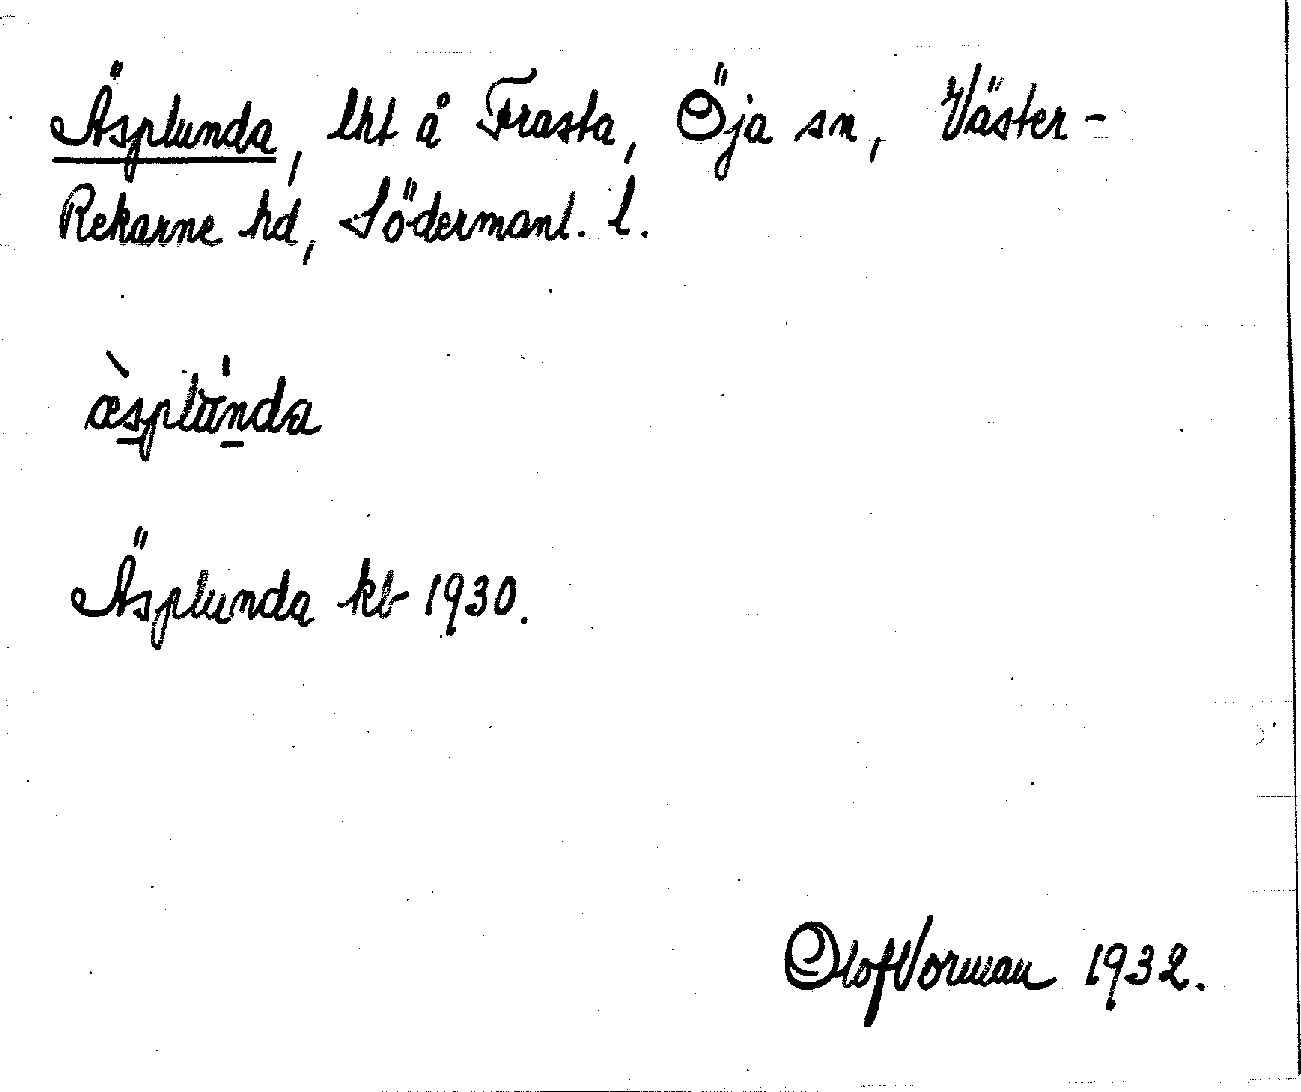 Äsplunda, lht å Frasta, Öja sn, Väster-
Rekarne hd, Södermanl. l.
æ̀splu̇nda
Äsplunda kb 1930.
Olof Vorman 1932.